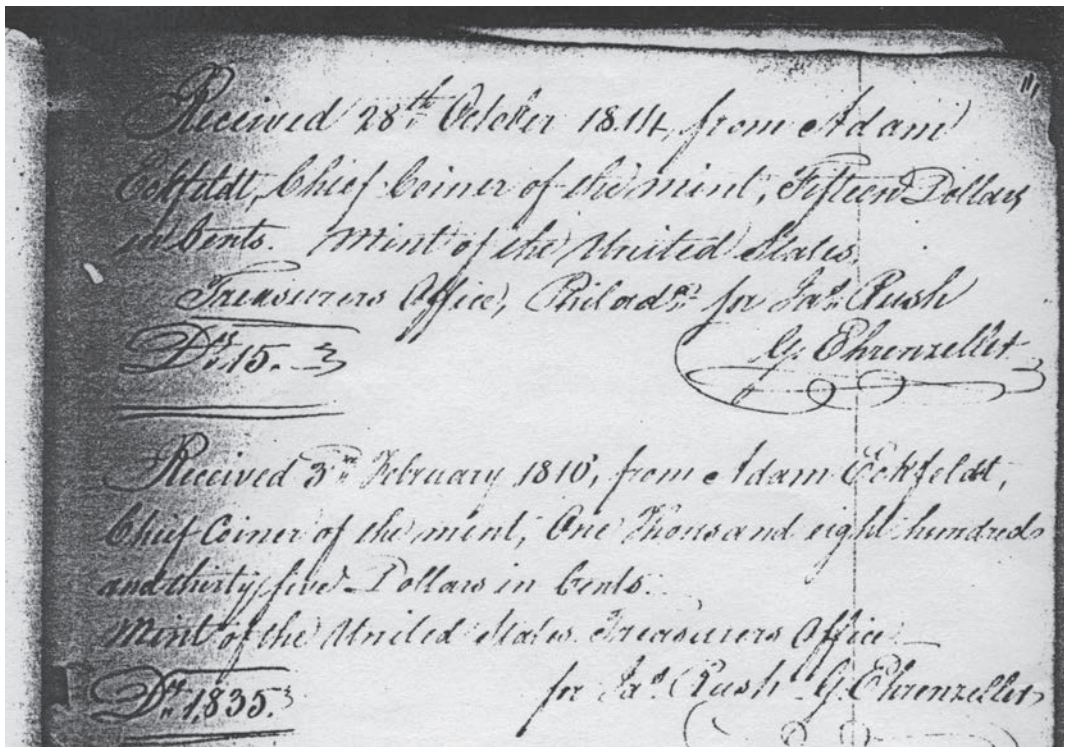 111
Received 28th October 1814, from Adam
Eckfeldt, Chief Coiner of the mint, Fifteen Dollars
in Cents. Mint of the United States,
Treasurers Office, Philada. for Jas. Rush
Drs. 15. G. Ehrenzeller
Received 3rd February 1816, from Adam Eckfeldt,
Chief Coiner of the mint, One Thousand eight hundred
and thirty five Dollars in Cents.
Mint of the United States Treasurers Office
for Jas. Rush G. Ehrenzeller
Drs. 1,835.